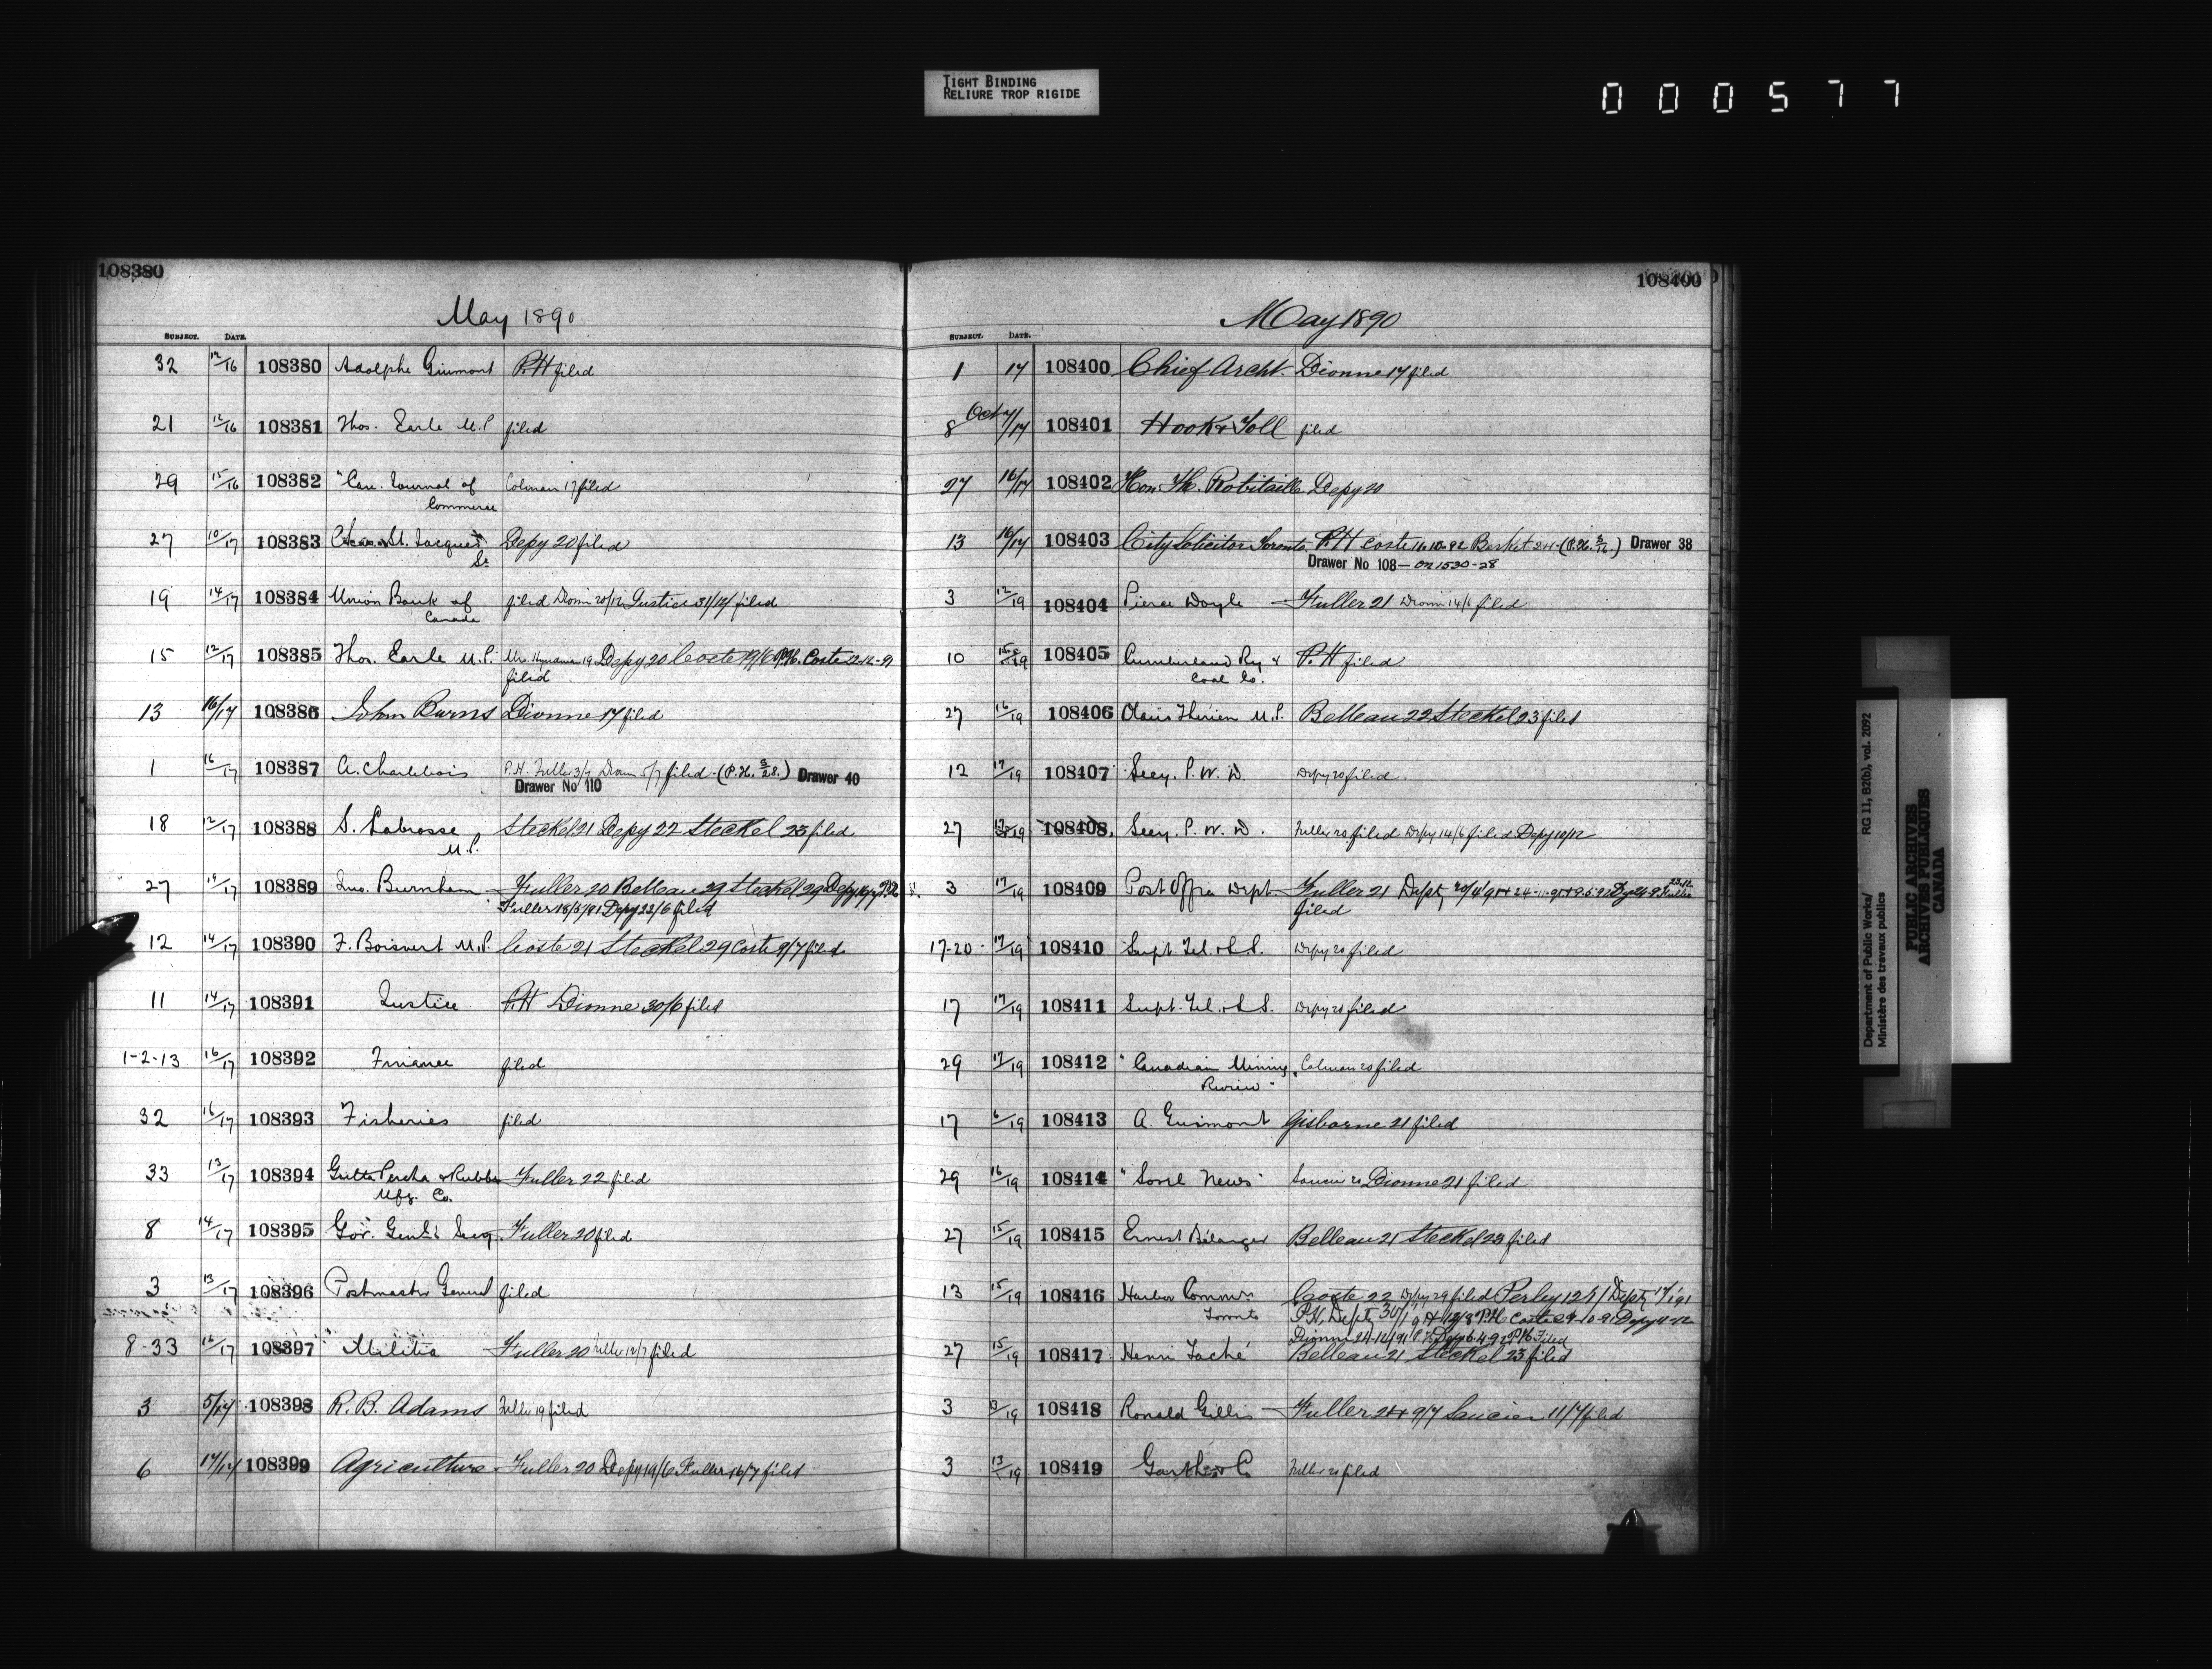 TIGHT BINDING
RELIURE TROP RIGIDE
000577
108380
May 1890
SUBJECT. DATE.
32 12/16 108380 Adolphe Guimont P.H filed
21 12/16 108381 Thos. Earle M.P filed
29 15/16 108382 "Can. Journal of Colman 17 filed
Commerce
27 10/17 108383 St. Jacques Depy 20 filed
Sr
19 14/17 108384 Union Bank of filed Dionn 20/12 Justice 31/12/ filed
Canada
15 12/17 108385 Thos. Earle M.P. 19 Depy 20 Coste P.H. Coste 12-12-91
filed
13 16/17 108386 John Burns Dionne 17 filed
1 16/17 108387 A. Charlebois P.H. Fuller 3/7 Dionn 5/7 filed - (P.H. 3/28.) Drawer 40
Drawer No 110
18 12/17 108388 S. Labrosse Steckel 21 Depy 22 Steckel 23 filed
M.P.
27 14/17 108389 Jno. Burnham Fuller 20 Belleau 29 Steckel 29 Depy
Fuller 18/5/91 Depy 22/6 filed
12 14/17 108390 F. Boisvert M.P. Coste 21 Steckel 29 Coste 9/7 filed
11 14/17 108391 Justice P.H Dionne 30/6 filed
1-2-13 16/17 108392 Finance filed
32 16/17 108393 Fisheries filed
33 13/17 108394 Gutta Percha & Rubber Fuller 22 filed
Mfg. Co.
8 14/17 108395 Gov. Genl's Secy Fuller 20 filed
3 13/17 108396 Postmaster General filed
8-33 16/17 108397 Militia Fuller 20 Fuller 12/7 filed
3 5/17 108398 R. B. Adams Fuller 19 filed
6 17/17 108399 Agriculture Fuller 20 Depy 19/6 Fuller 16/7 filed
108400
May 1890
SUBJECT. DATE.
1 17 108400 Chief Archt. Dionne 17 filed
8 Oct 7/17 108401 Hook & Toll filed
27 16/17 108402 Hon. Th. Robitaille Depy 20
13 16/17 108403 City Solicitor Toronto P.H Coste 14.10.92 24-(P.H. ) Drawer 38
Drawer No 108 - on 1530-28
3 12/19 108404 Pierce Doyle Fuller 21 Dionn 14/6 filed
10 19 108405 Cumberland Ry & P.H filed
Coal Co.
27 16/19 108406 Olaüs Thérien M.P. Belleau 22 Steckel 23 filed
12 17/19 108407 Secy. P. W. D. Depy 20 filed
27 17/19 108408 Secy. P. W. D. Fuller 20 filed Depy 14/6 filed Depy 10/12
3 17/19 108409 Post Office Dept Fuller 21 Depty 20/4/91
filed
17-20 17/19 108410 Supt Tel. & S.S. Depy 20 filed
17 17/19 108411 Supt. Tel. & S.S. Depy 20 filed
29 17/19 108412 "Canadian Mining Colman 20 filed
Review"
17 6/19 108413 A. Guimont Gisborne 21 filed
29 16/19 108414 "Sorel News" Saucier 20 Dionne 21 filed
27 15/19 108415 Ernest Bélanger Belleau 21 Steckel 23 filed
13 15/19 108416 Harbor Commrs Coste 22 Depy 29 filed Perley 12/1/ Depty
Toronto P.H. Depty 30/1/91 P.H Coste 29-10-91 Depy
Dionne 24-12/91 P.H. Depy 6.4.92 P.H. Filed
27 15/19 108417 Henri Taché Belleau 21 Steckel 23 filed
3 19 108418 Ronald Gillis Fuller 21 & 9/7 Saucier 11/7 filed
3 13/19 108419 Garth & Co Fuller 20 filed
Department of Public Works/ RG 11, B2(b), vol. 2092
Ministère des travaux publics
PUBLIC ARCHIVES
ARCHIVES PUBLIQUES
CANADA